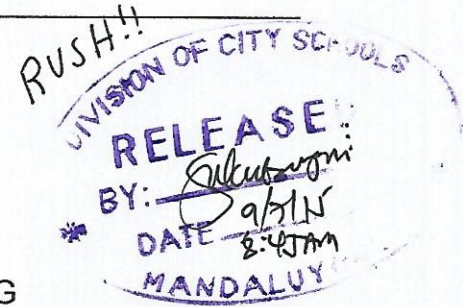 RUSH!!
DIVISION OF CITY SCHOOLS
RELEASE
BY:
DATE 9/7/15
8:45AM
MANDALUY
G